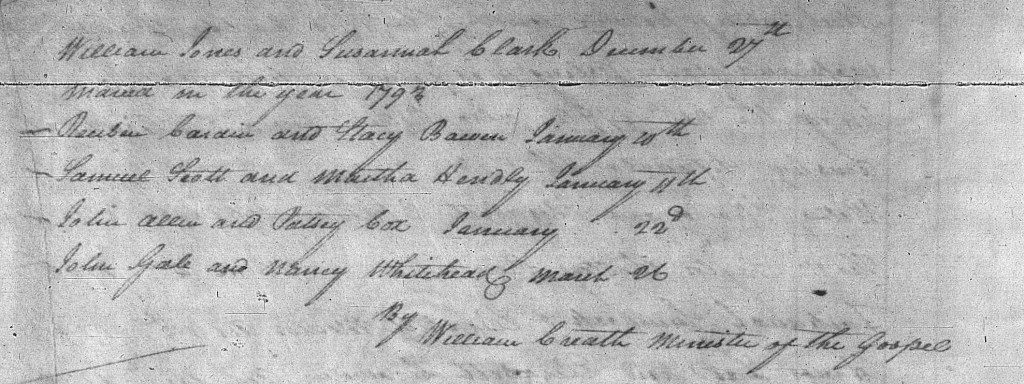 William Jones and Susannah Clark December 27th
Maried in the year 1793
Reubin Cardin and Stacy Bowen January 10th
Samuel Scott and Martha Hendly January 11th
John Allen and Patsey Cox January 22d
John Gale and Nancy Whitehead March 26
By William Creath Minister of the Gospel